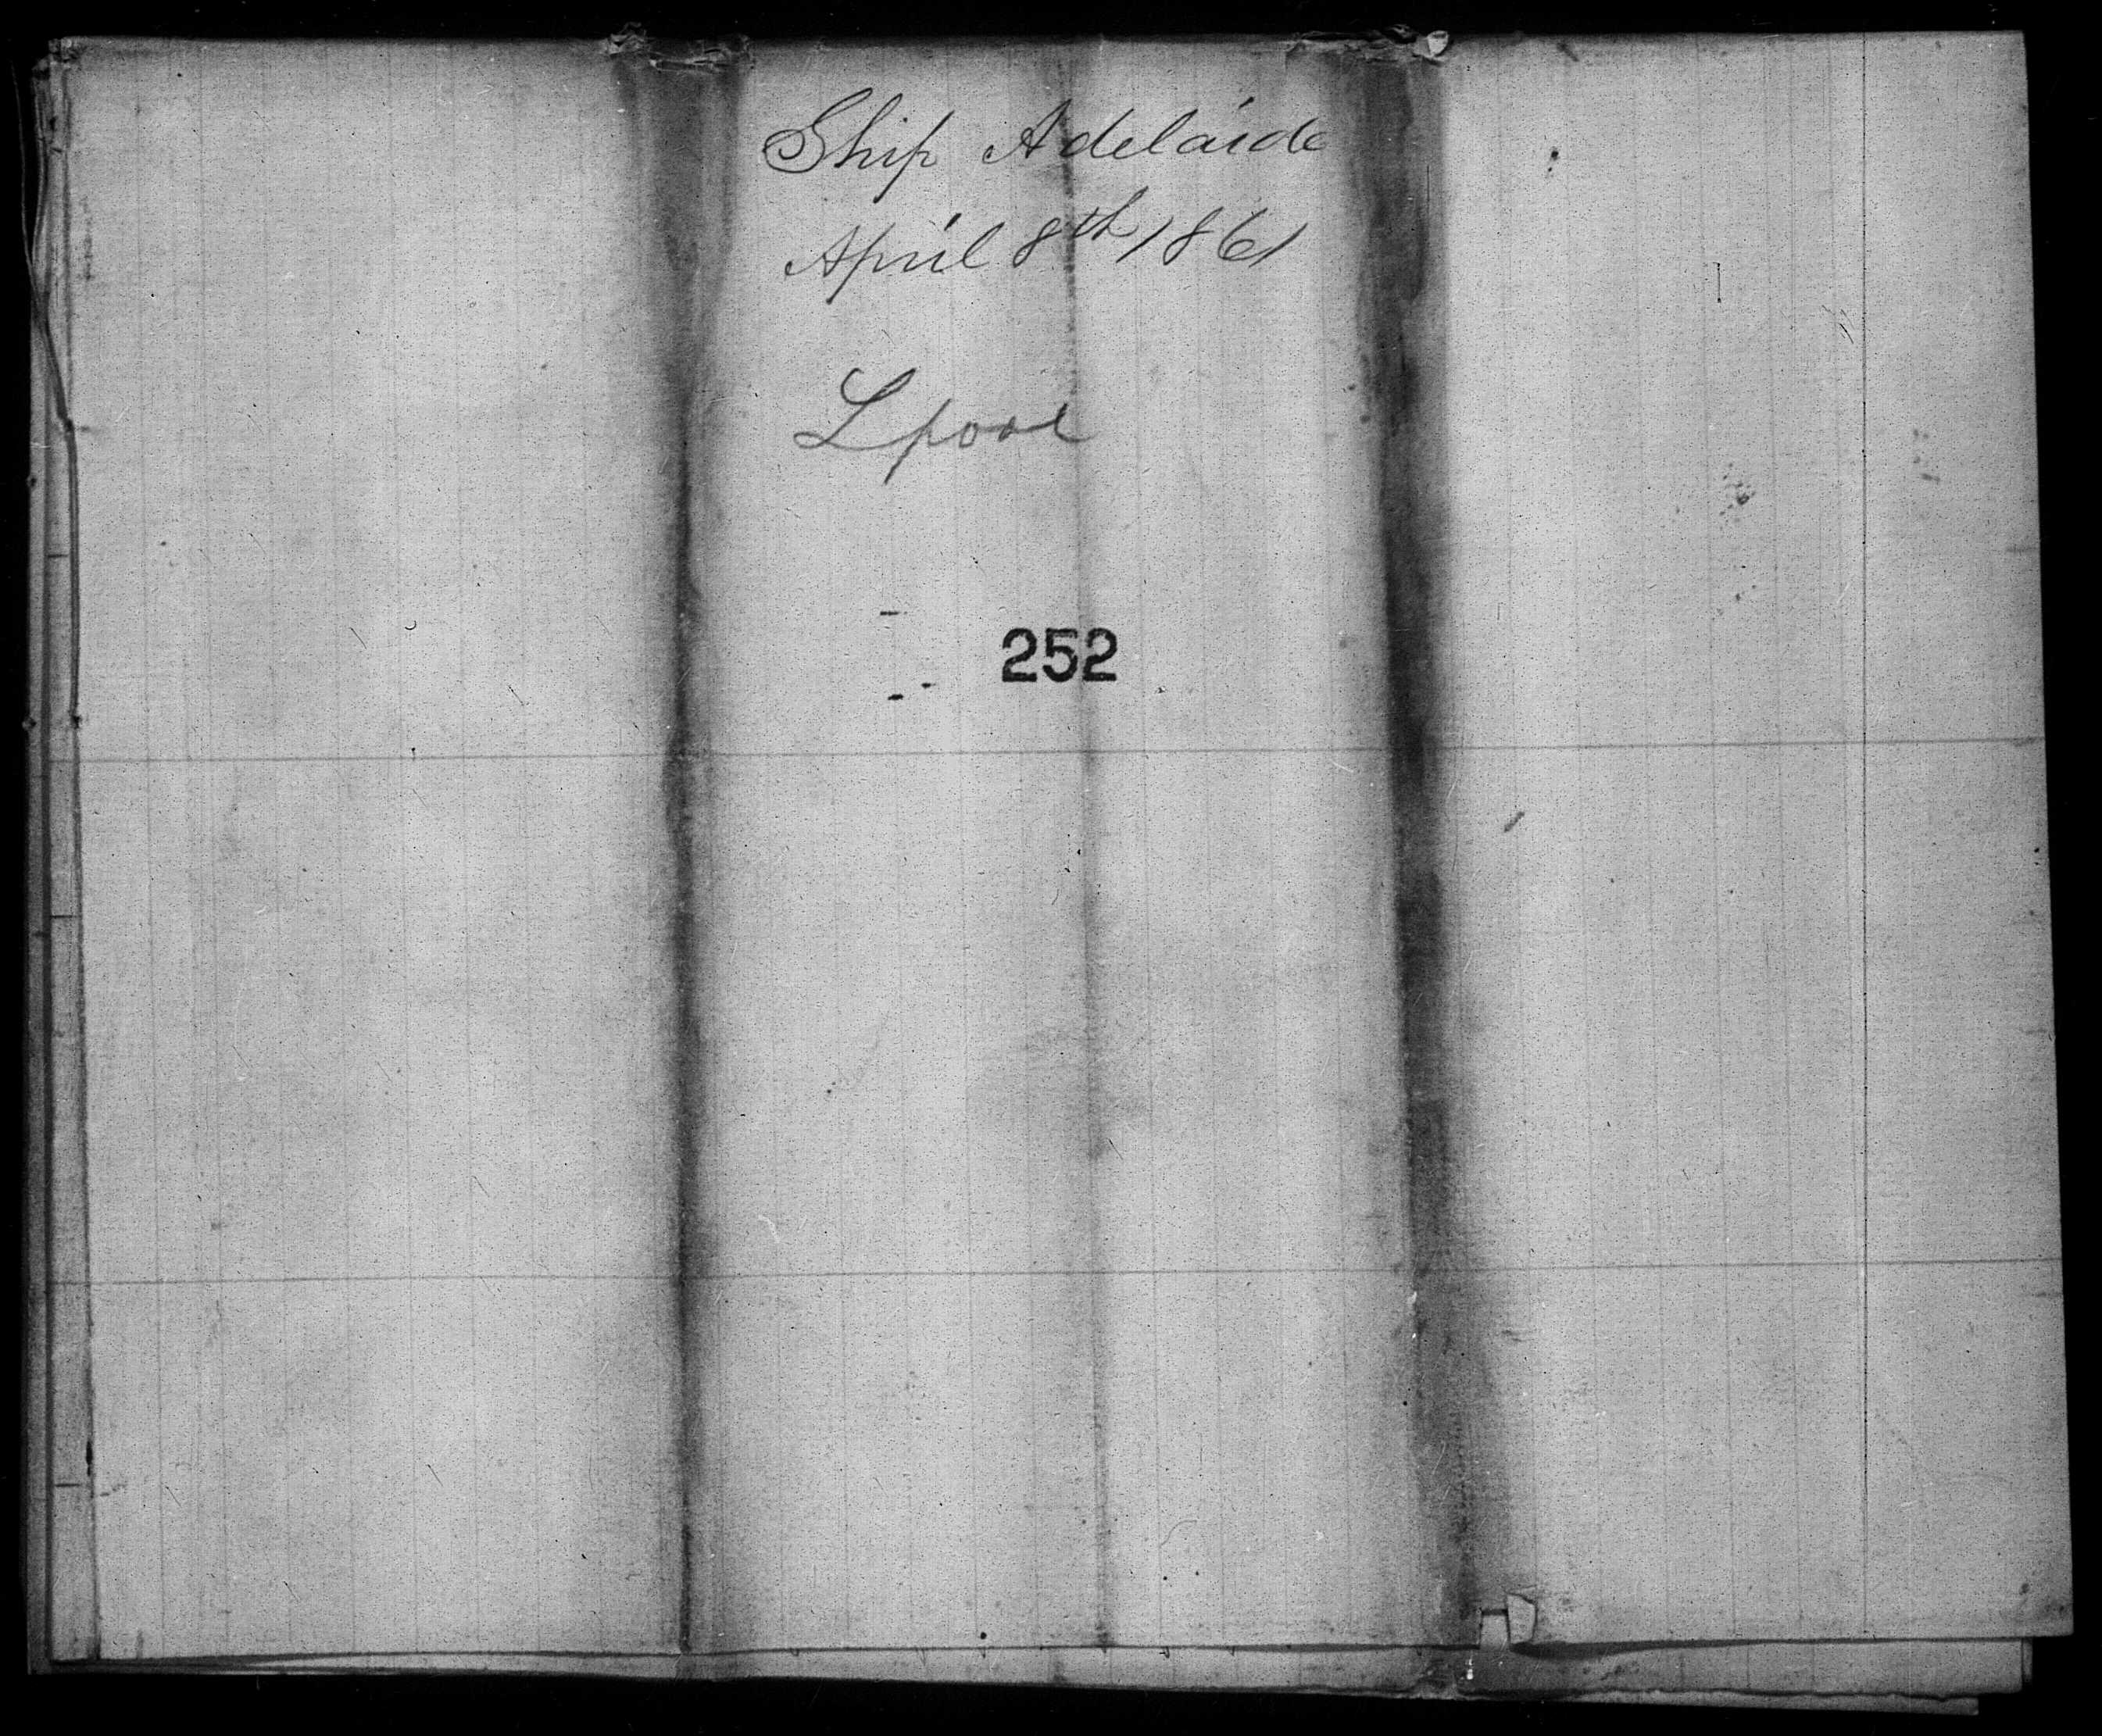 Ship Adelaide
April 8th 1861
Lpool
252